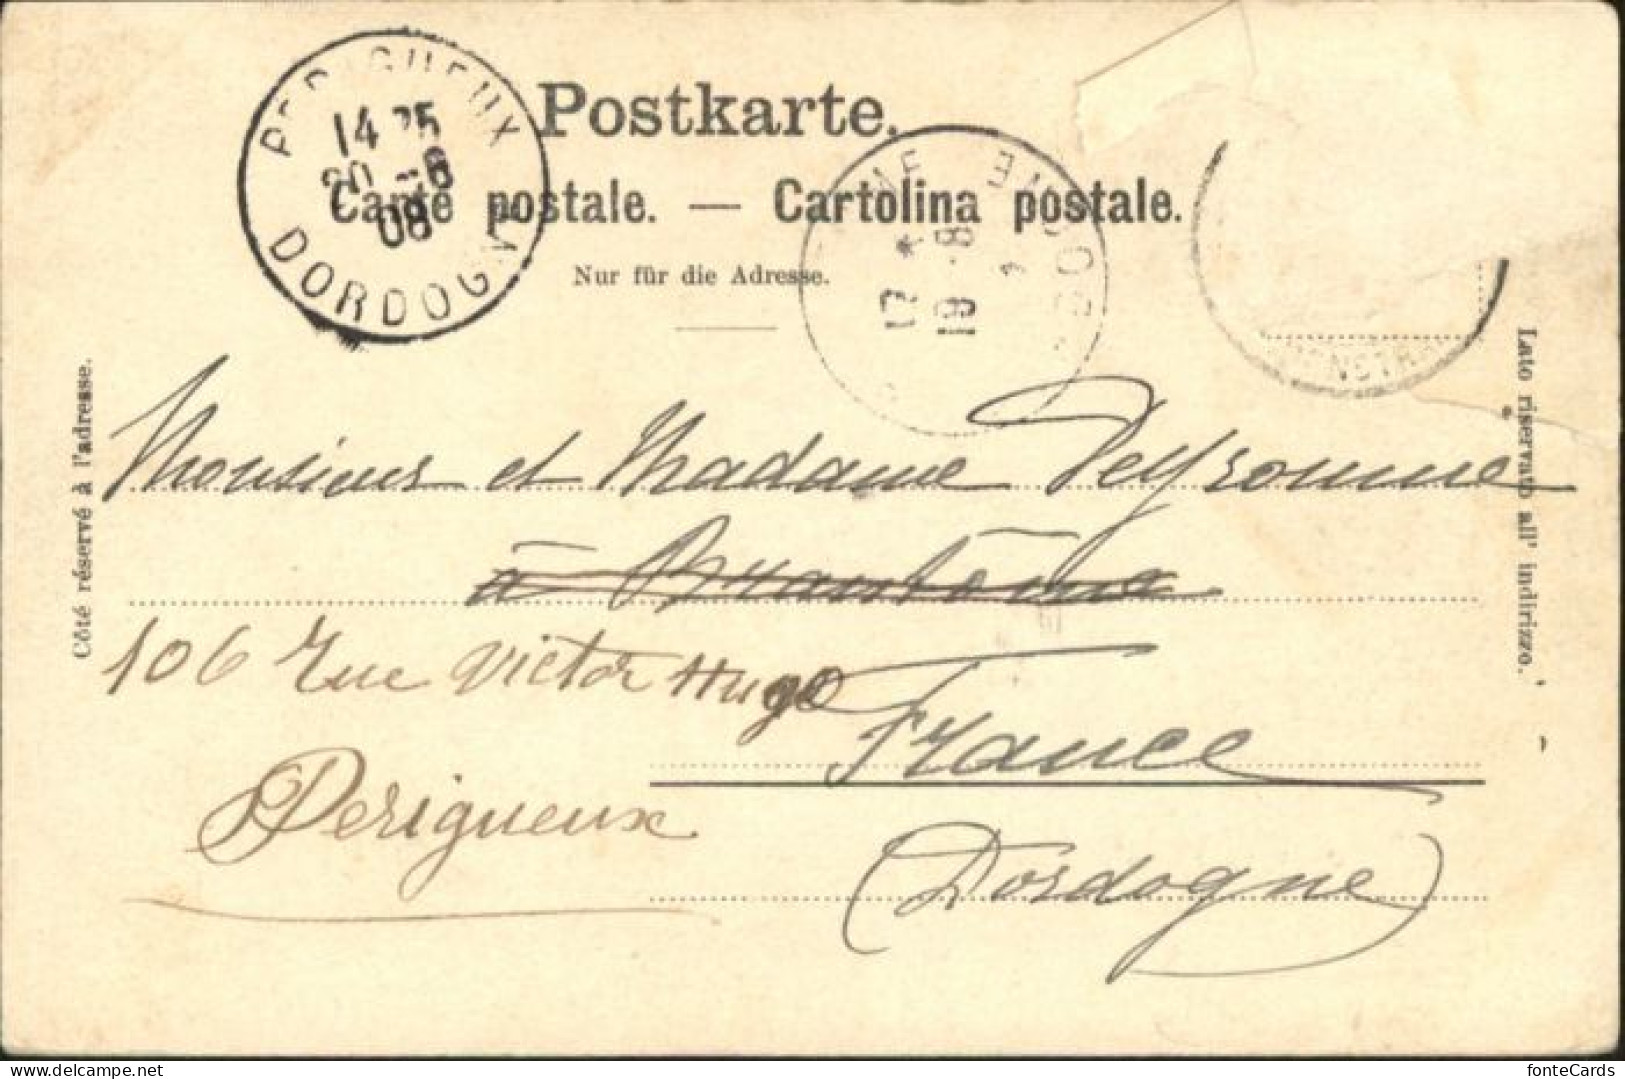 Postkarte.
Carte postale. — Cartolina postale.
Nur für die Adresse.
PERIGUEUX
14 25
20 -8
08
DORDOGNE
17 *
19 -8
Côté réservé à l'adresse.
Lato riservato all' indirizzo.
Monsieur et Madame Peyronne
à Brantôme
106 Rue Victor Hugo
France
Perigueux
(Dordogne)
fonteCards